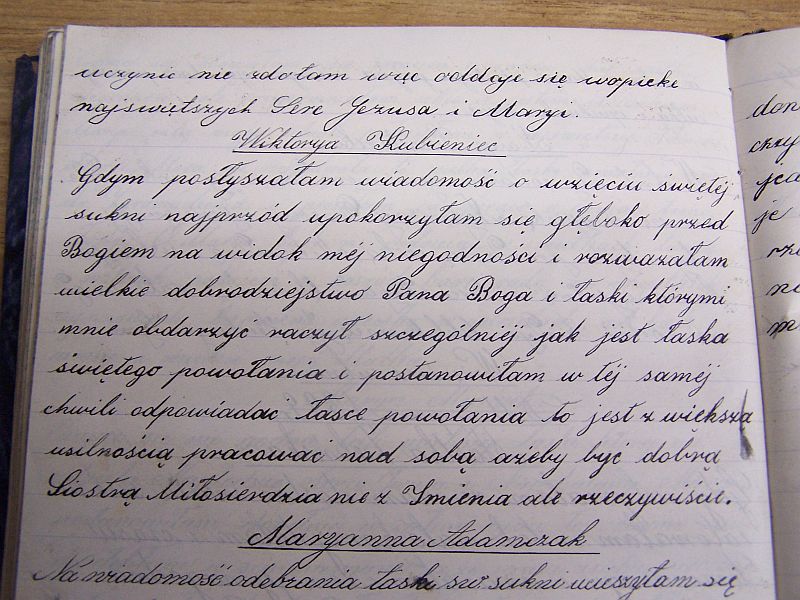 uczynić nie zdołam więc oddaję się w opiekę
najświętszych Serc Jezusa i Maryi.
Wiktorya Kubieniec
Gdym posłyszałam wiadomość o wzięciu świętéj
sukni najprzód upokorzyłam się głęboko przed
Bogiem na widok méj niegodności i rozważałam
wielkie dobrodziejstwo Pana Boga i łaski którymi
mnie obdarzyć raczył szczególniéj jak jest łaska
świętego powołania i postanowiłam w téj saméj
chwili odpowiadać łasce powołania to jest z większą
usilnością pracować nad sobą ażeby być dobrą
Siostrą Miłosierdzia nie z Imienia ale rzeczywiście.
Maryanna Adamczak
Na wiadomość odebrania łaski św. sukni ucieszyłam się
don
czy
je
m